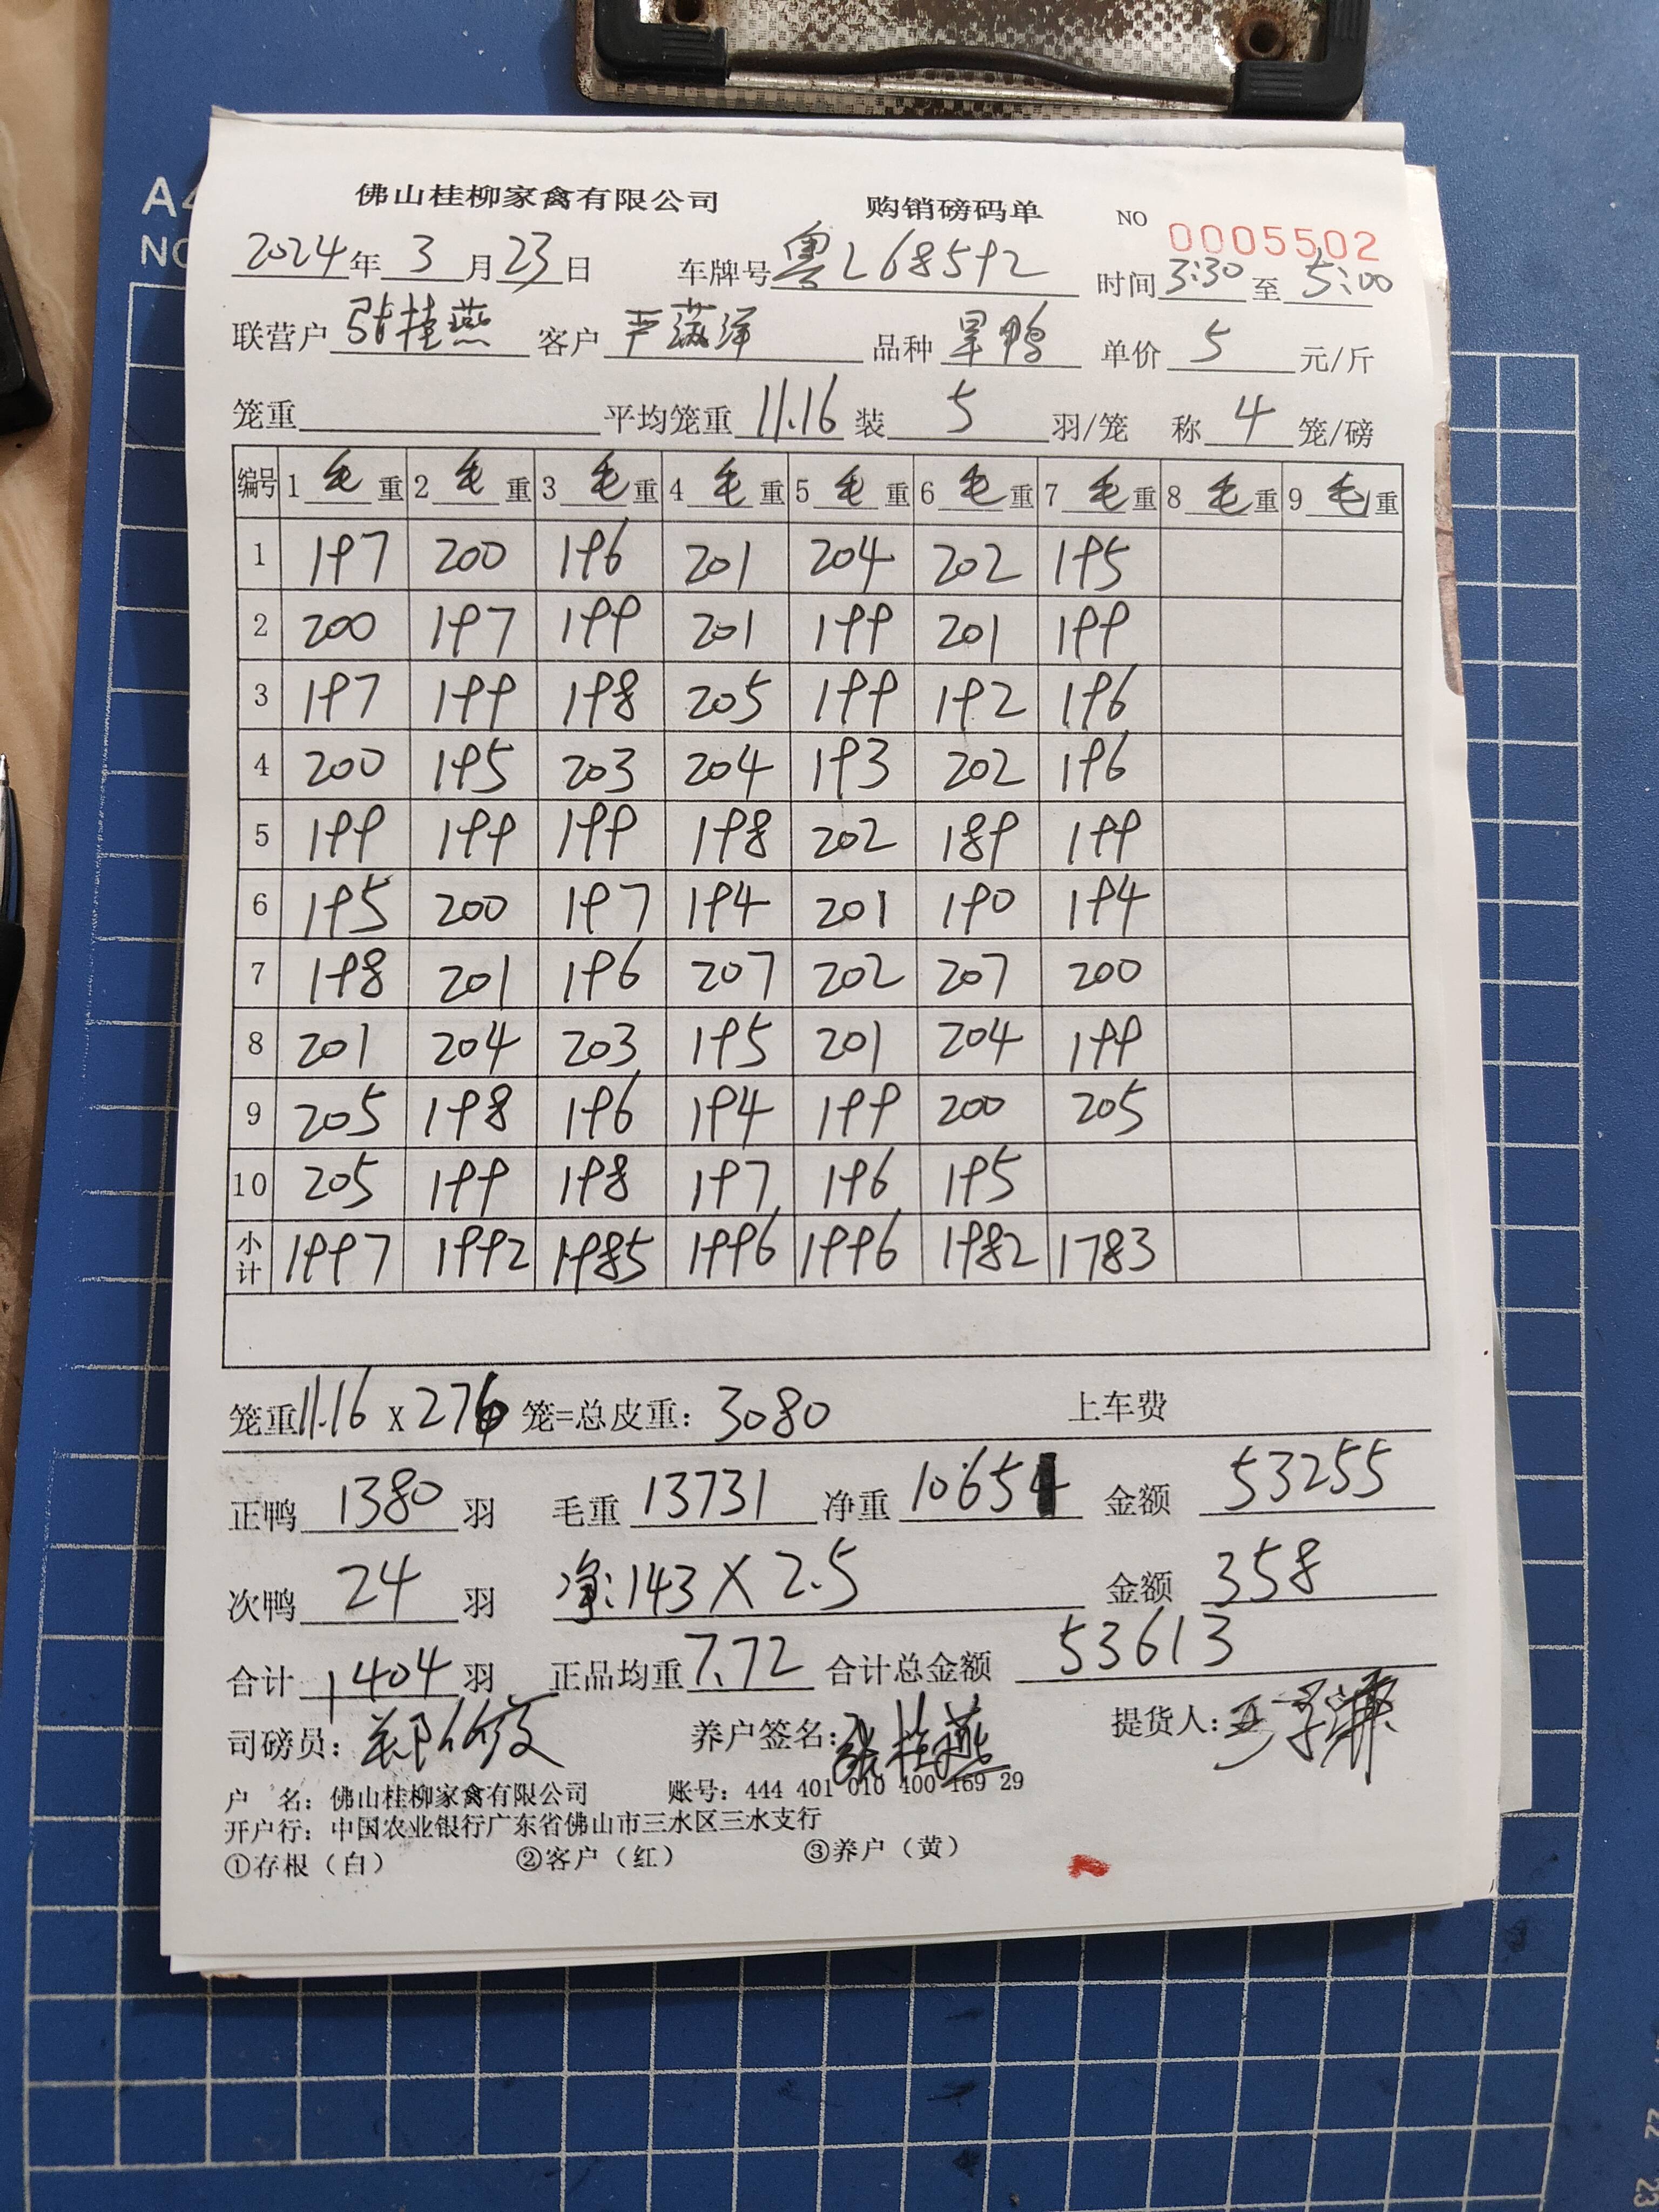 A4
NO
佛山桂柳家禽有限公司 购销磅码单 NO 0005502
2024年 3 月 23 日 车牌号 粤L68592 时间 3:30 至 5:00
联营户 张桂燕 客户 品种 旱鸭 单价 5 元/斤
笼重 平均笼重 11.16 装 5 羽/笼 称 4 笼/磅
编号 1 毛 重 2 毛 重 3 毛 重 4 毛 重 5 毛 重 6 毛 重 7 毛 重 8 毛 重 9 毛 重
1 197 200 196 201 204 202 195
2 200 197 199 201 199 201 199
3 197 199 198 205 199 192 196
4 200 195 203 204 193 202 196
5 199 199 199 198 202 189 199
6 195 200 197 194 201 190 194
7 198 201 196 207 202 207 200
8 201 204 203 195 201 204 199
9 205 198 196 194 199 200 205
10 205 199 198 197 196 195
小计 1997 1992 1985 1996 1996 1982 1783
笼重 11.16 X 276 笼=总皮重: 3080 上车费
正鸭 1380 羽 毛重 13731 净重 10651 金额 53255
次鸭 24 羽 净:143 X 2.5 金额 358
合计 1404 羽 正品均重 7.72 合计总金额 53613
司磅员: 养户签名: 张桂燕 提货人:
户 名: 佛山桂柳家禽有限公司 账号: 444 401 010 400 169 29
开户行: 中国农业银行广东省佛山市三水区三水支行
①存根（白） ②客户（红） ③养户（黄）
22
23